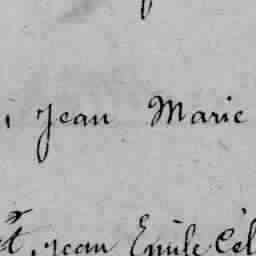 , Jean Marie
t, Jean Emile Cel